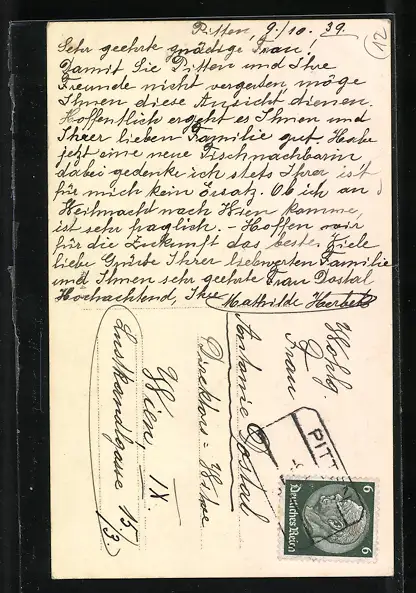 Pitten, 9./10. 39.
21
Sehr geehrte gnädige Frau!
Damit Sie Pitten und Ihre
Freunde nicht vergessen, möge
Ihnen diese Ansicht dienen.
Hoffentlich ergeht es Ihnen und
Ihrer lieben Familie gut. Habe
jetzt eine neue Tischnachbarin
dabei gedenke ich stets Ihrer, ist
für mich kein Ersatz. Ob ich an
Weihnacht nach Wien komme,
ist sehr fraglich. – Hoffen wir
für die Zukunft das beste. Viele
liebe Grüsse Ihrer liebwerten Familie
und Ihnen sehr geehrte Frau Dostal
Hochachtend, Ihre Mathilde
Wohlg.
Frau
Antonie Dostal
Direktors-Witwe
Wien, IX.
Lustkandlgasse 15/3.
PITTEN
Deutsches Reich
6 6